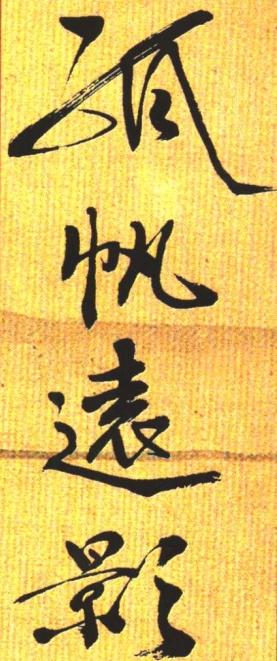 孤帆遠影